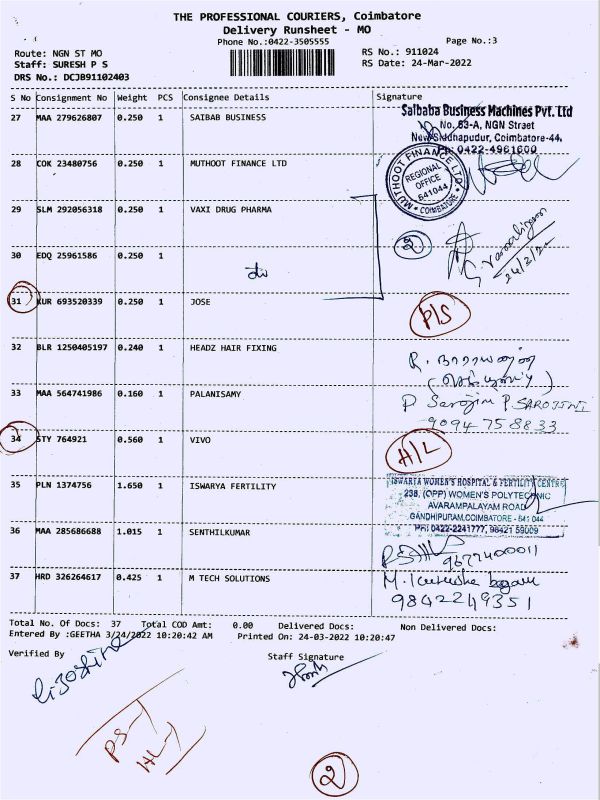 THE PROFESSIONAL COURIERS, Coimbatore
Delivery Runsheet - MO
Phone No.:0422-3505555
Page No.:3
Route: NGN ST MO
RS No.: 911024
Staff: SURESH P S
RS Date: 24-Mar-2022
DRS No.: DCJB91102403
S No Consignment No Weight PCS Consignee Details Signature
27 MAA 279626807 0.250 1 SAIBAB BUSINESS
Saibaba Business Machines Pvt. Ltd
No. 63-A, NGN Street
New Siddhapudur, Coimbatore-44.
Ph: 0422-4961600
28 COK 23480756 0.250 1 MUTHOOT FINANCE LTD
MUTHOOT FINANCE LTD
REGIONAL
OFFICE
641044
COIMBATORE
29 SLM 292056318 0.250 1 VAXI DRUG PHARMA
30 EDQ 25961586 0.250 1
do
2
24/3/22
31 KUR 693520339 0.250 1 JOSE
P/S
32 BLR 1250405197 0.240 1 HEADZ HAIR FIXING
33 MAA 564741986 0.160 1 PALANISAMY
P Sarojini P. SAROJINI
9094758833
34 STY 764921 0.560 1 VIVO
H/L
35 PLN 1374756 1.650 1 ISWARYA FERTILITY
ISWARYA WOMEN'S HOSPITAL & FERTILITY CENTRE
238, (OPP) WOMEN'S POLYTECHNIC
AVARAMPALAYAM ROAD
GANDHIPURAM, COIMBATORE - 641 044
PH: 0422-2241777, 98421 59009
36 MAA 285686688 1.015 1 SENTHILKUMAR
9677400011
37 HRD 326264617 0.425 1 M TECH SOLUTIONS
9842249351
Total No. Of Docs: 37 Total COD Amt: 0.00 Delivered Docs: Non Delivered Docs:
Entered By :GEETHA 3/24/2022 10:20:42 AM Printed On: 24-03-2022 10:20:47
Verified By
Staff Signature
PS-1
HL-1
2